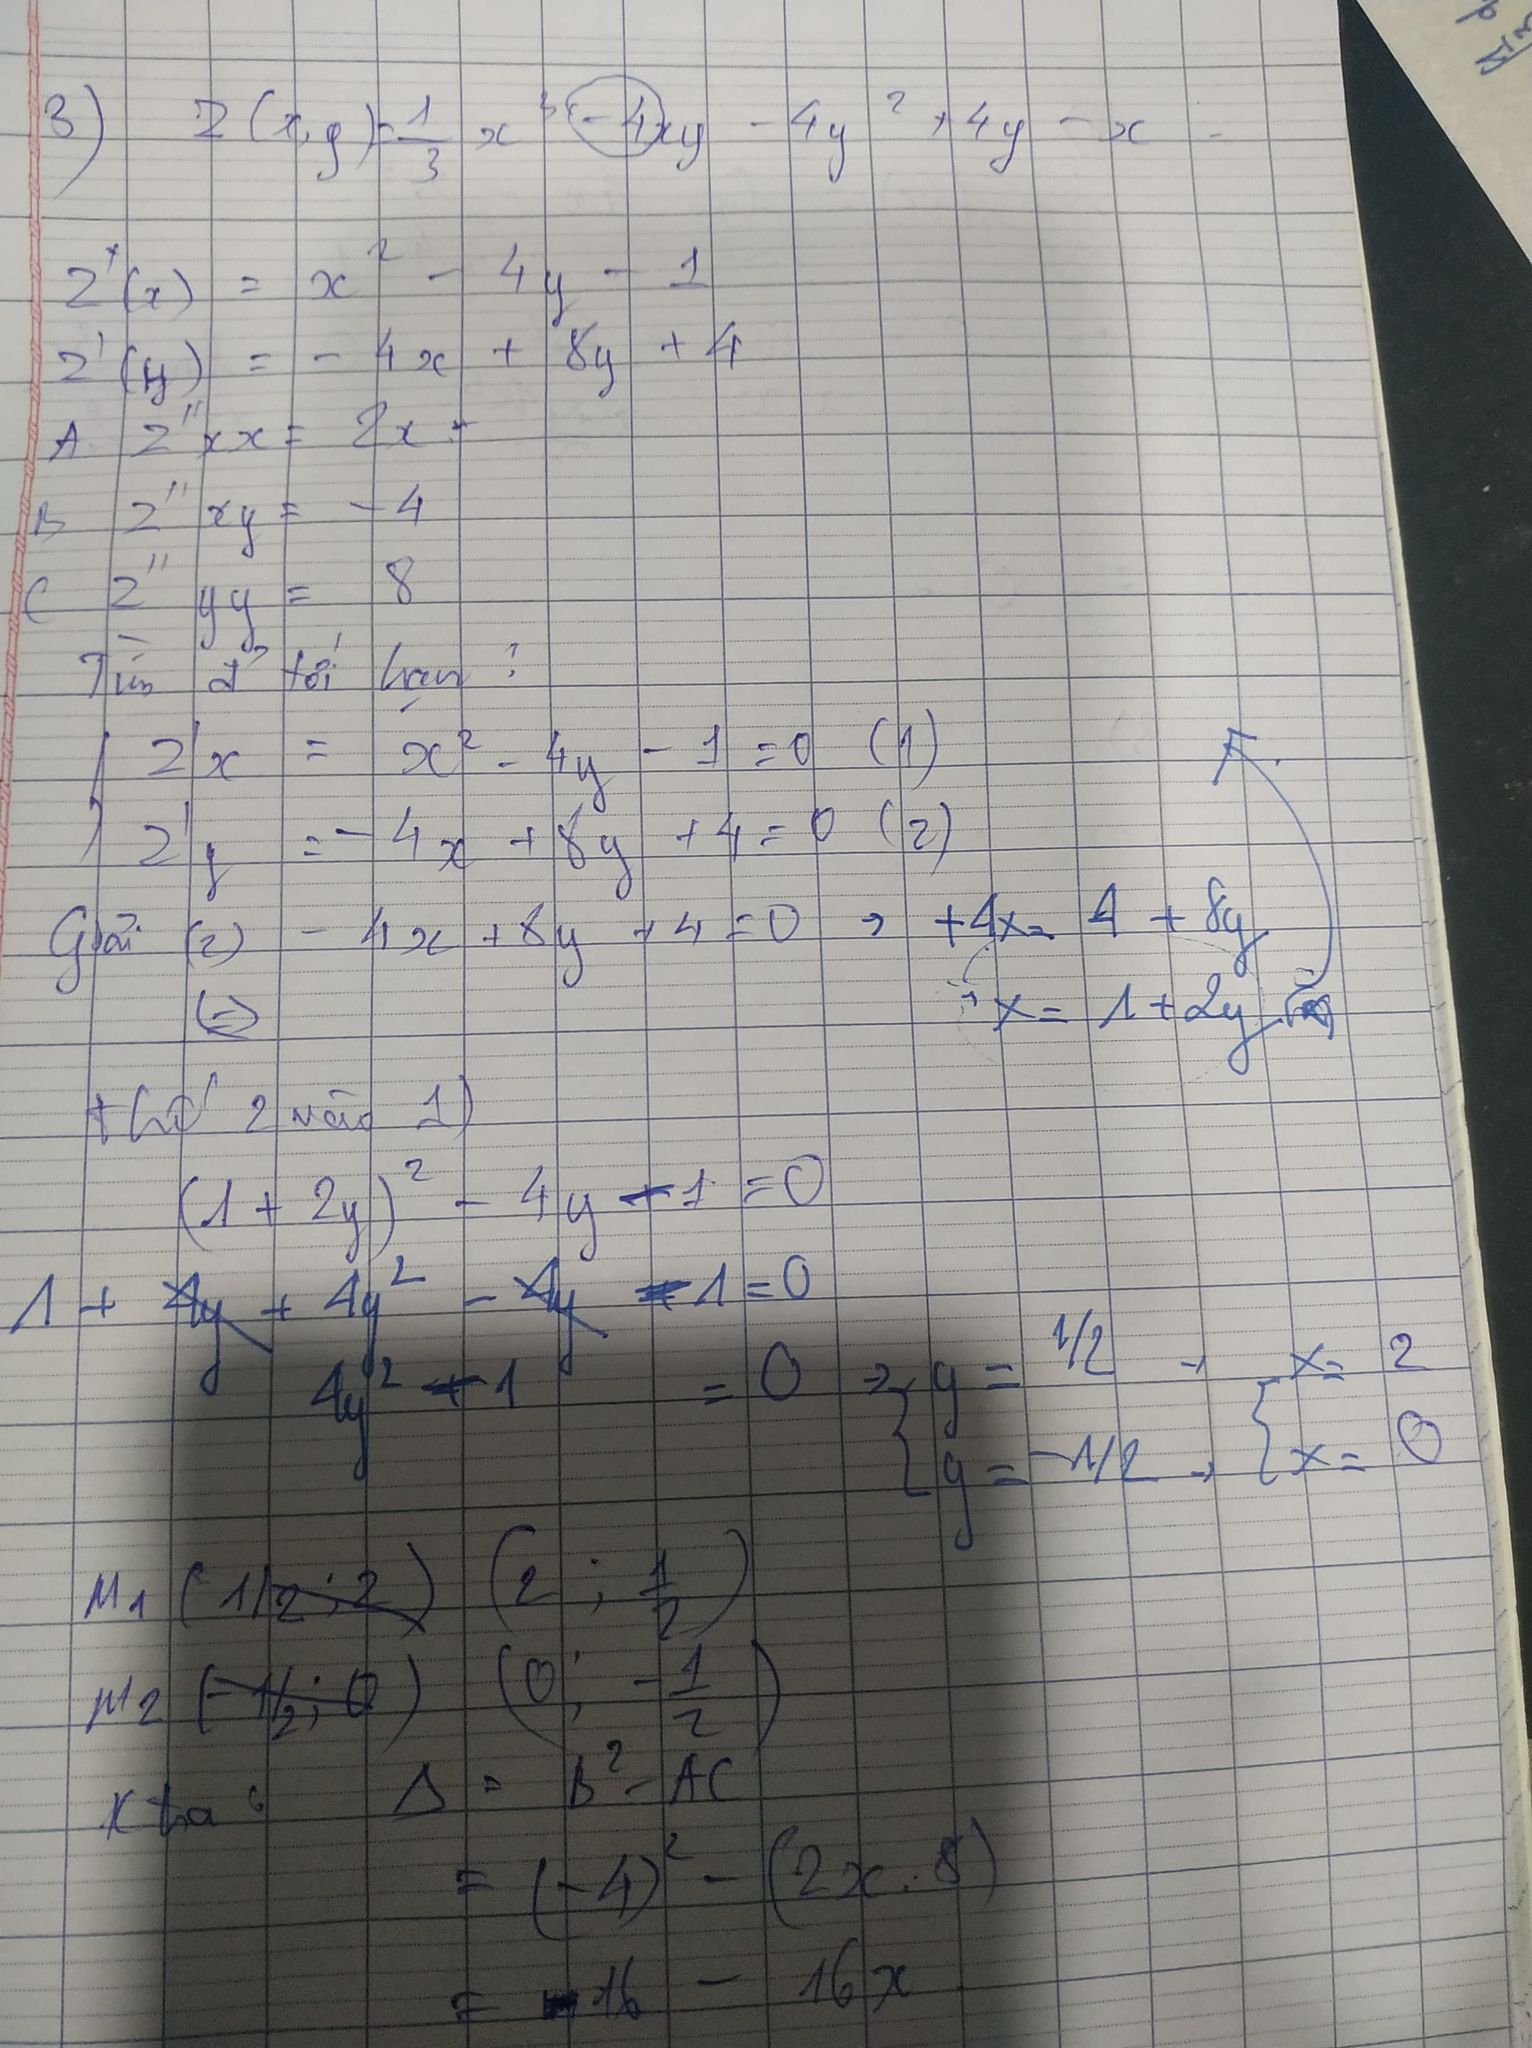 3) Z(x,y)= 1/3 x³ - 4xy - 4y² + 4y - x
Z'(x) = x² - 4y - 1
Z'(y) = - 4x + 8y + 4
A Z''xx = 2x
B Z''xy = - 4
C Z''yy = 8
Tìm đ² tới hạn :
Z'x = x² - 4y - 1 = 0 (1)
Z'y = - 4x + 8y + 4 = 0 (2)
Giải (2) - 4x + 8y + 4 = 0 → +4x = 4 + 8y
(=) → x = 1 + 2y
thế 2 vào 1)
(1 + 2y)² - 4y - 1 = 0
1 + 4y + 4y² - 4y - 1 = 0
4y² - 1 = 0 → { y = 1/2 → x = 2
{ y = -1/2 → { x = 0
M1 (1/2 ; 2) (2 ; 1/2)
M2 (-1/2 ; 0) (0 ; -1/2)
Δ = B² - AC
= (-4)² - (2x . 8)
= 16 - 16x